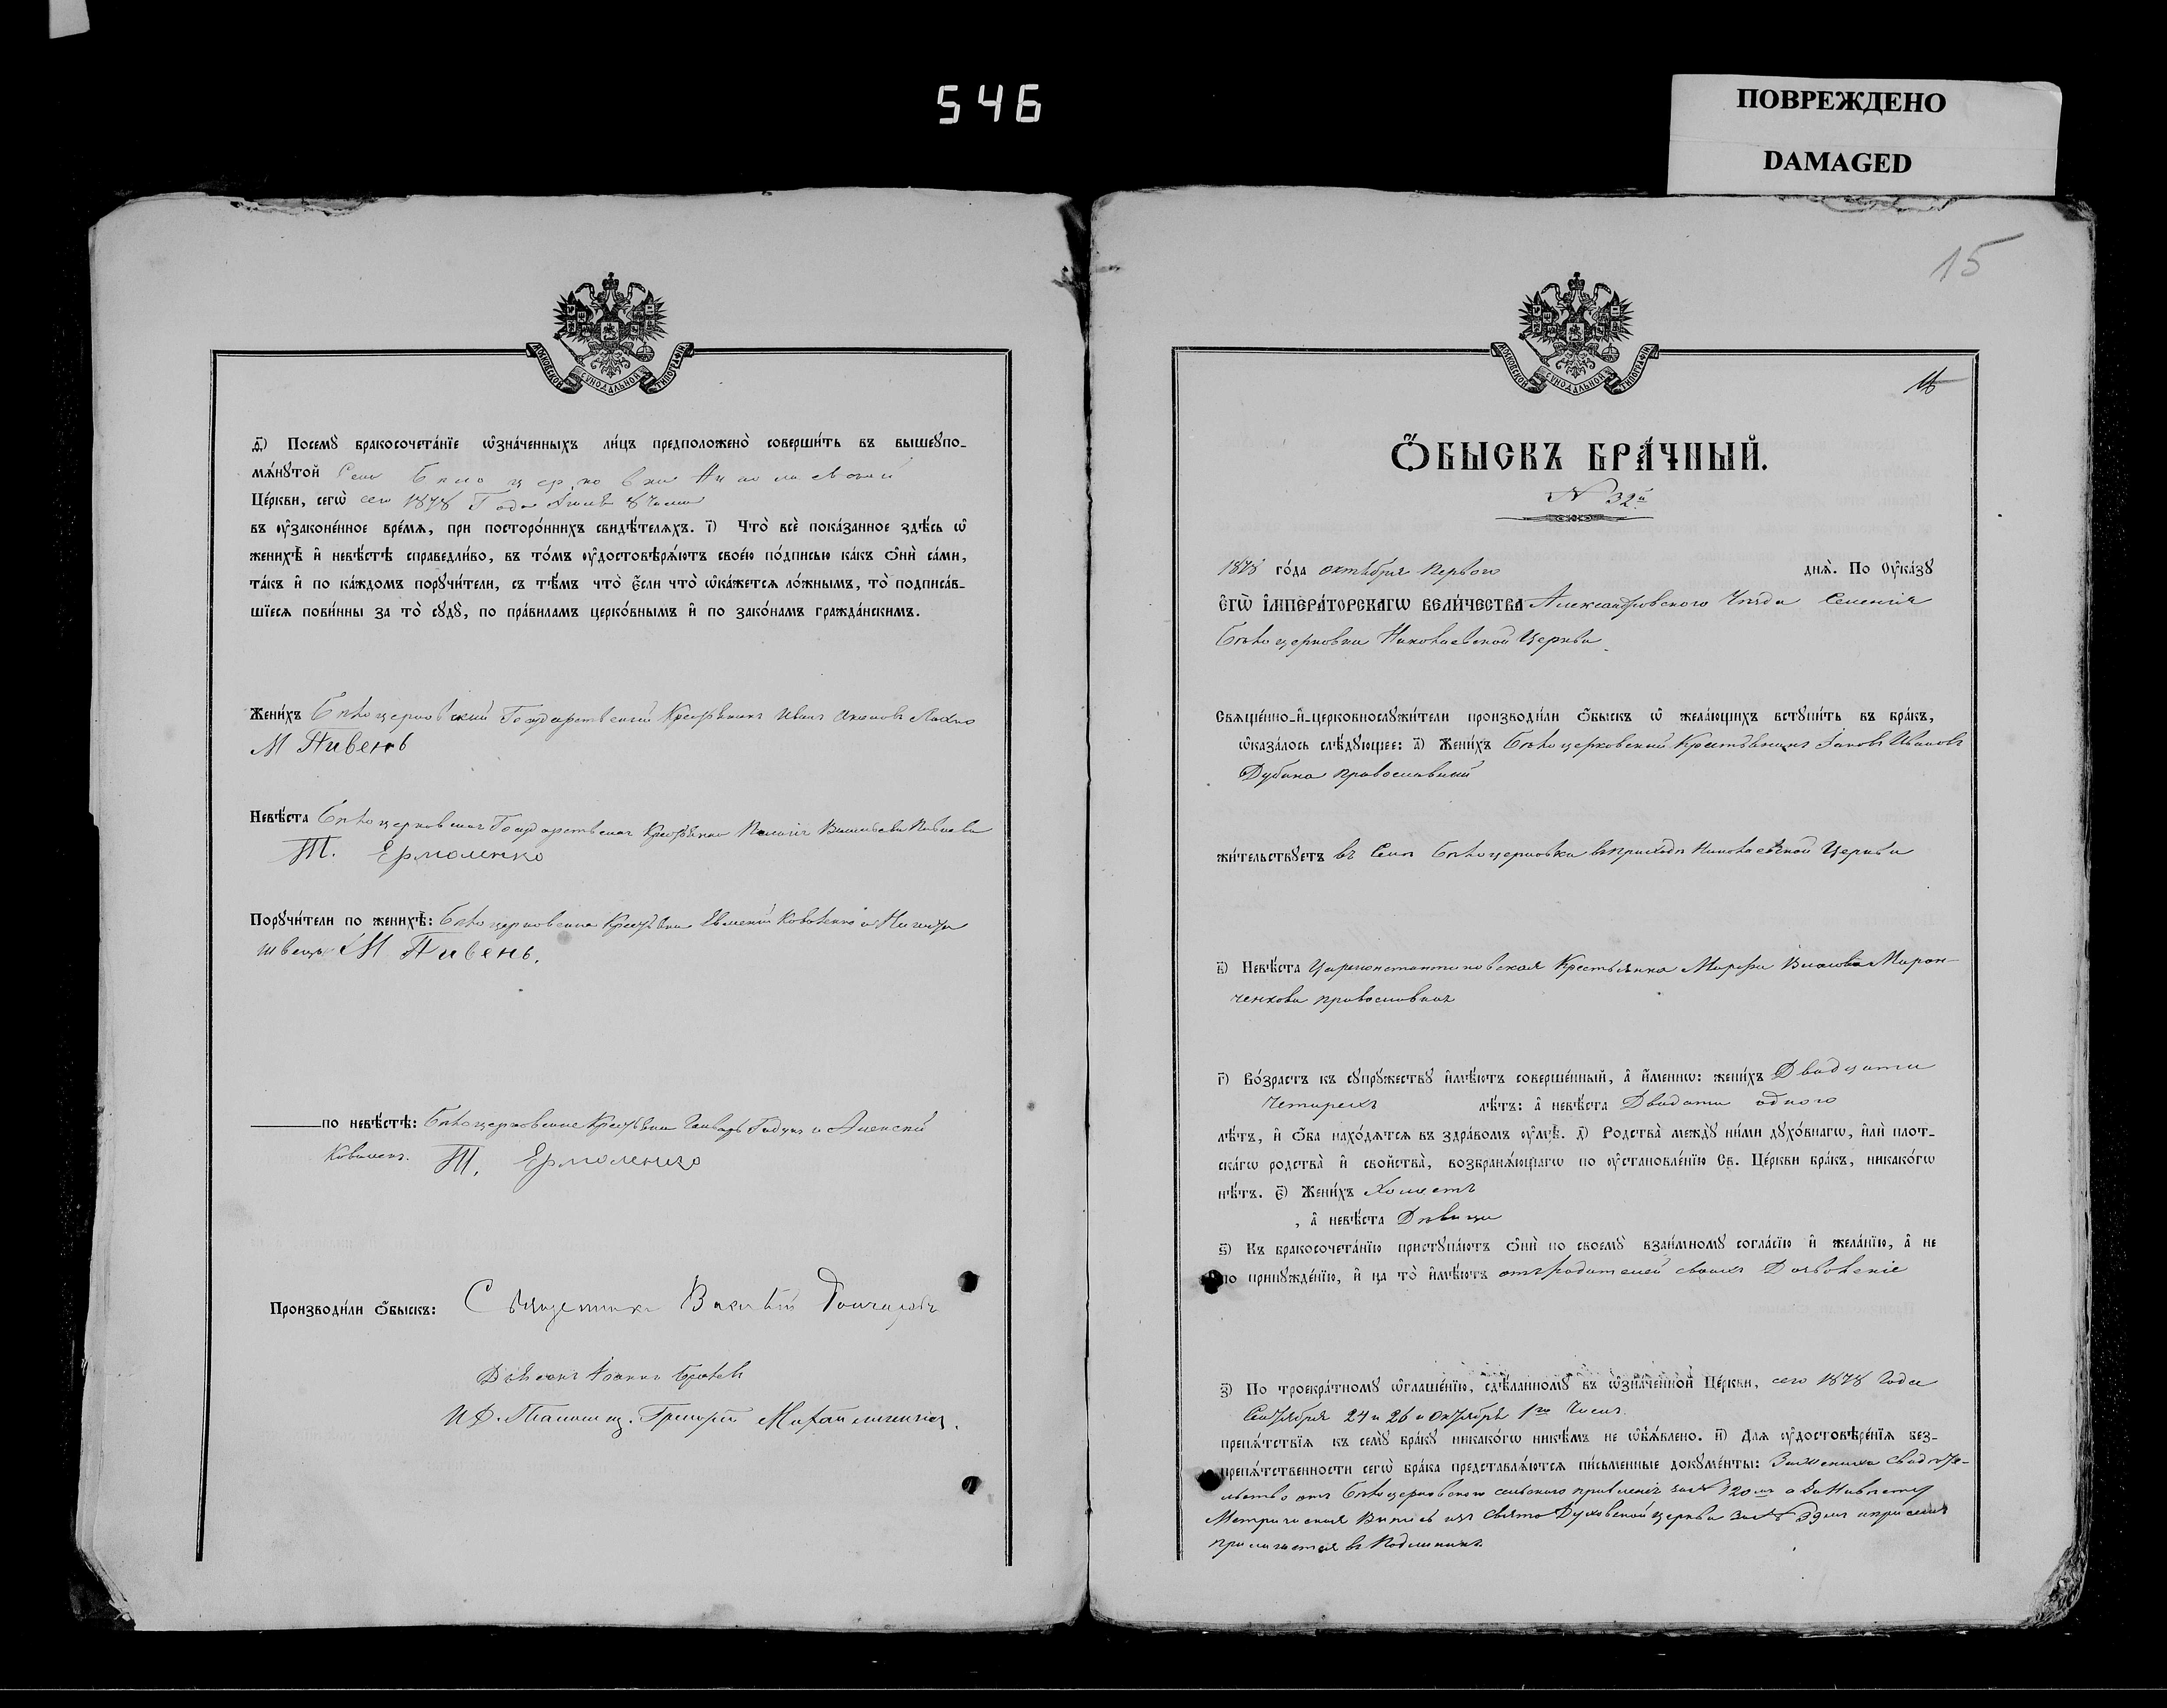 546
ПОВРЕЖДЕНО
DAMAGED
МОСКОВСКОЙ СѴНОДАЛЬНОЙ ТИПОГРАФІИ
Посемꙋ̀ бракосочета́нїе ѡ҆зна́ченныхъ ли́цъ предположено̀ соверши́ть въ вышеꙋпо-
мѧ́нꙋтой Села Белоцерковки Николаевской
Це́ркви, сегѡ̀ сего 1878 Года
въ ᲂу҆законе́нное вре́мѧ, при посторо́ннихъ свидѣ́телѧхъ. і҃) Что̀ всѐ пока́занное здѣ́сь ѡ҆
женихѣ̀ и҆ невѣ́стѣ справедли́во, въ то́мъ ᲂу҆достовѣрѧ́ютъ свое́ю по́дписью ка́къ ѻ҆нѝ са́ми,
та́къ и҆ по ка́ждомъ порꙋчи́тели, съ тѣ́мъ что̀ є҆́сли что̀ ѡ҆ка́жетсѧ ло́жнымъ, то̀ подписа́в-
шїесѧ пови́нны за то̀ сꙋдꙋ̀, по пра́виламъ церко́внымъ и҆ по зако́намъ гражда́нскимъ.
Жени́хъ Бѣлоцерковский Государственый Крестянинъ Иванъ
М Пивень
Невѣ́ста Бѣлоцерковская Государственая Крестянка
Т. Ермоленко
Порꙋчи́тели по женихѣ̀: Бѣлоцерковские Крестяни Евмений Коваленко и Никита
швецъ М Пивень.
по невѣ́стѣ: Бѣлоцерковские Крестяни и Алексей
Т. Ермоленко
Производи́ли ѻ҆́быскъ: Священникъ Василій Гончаровъ
Діяконъ Іоаннъ
И Д. Псаломщ. Григорій
15
МОСКОВСКОЙ СѴНОДАЛЬНОЙ ТИПОГРАФІИ
16
Ѻ҆́БЫСКЪ БРА́ЧНЫЙ.
N 32й
1878 го́да октября первого днѧ̀. По Оу҆ка́зꙋ
Є҆гѡ̀ І҆мпера́торскагѡ Вели́чества Александровского Уезда Селения
Бѣлоцерковки Николаевской Церкви
Свѧще́нно-и҆-церковнослꙋжи́тели производи́ли ѻ҆́быскъ ѡ҆ жела́ющихъ встꙋпи́ть въ бра́къ,
ѡ҆каза́лось слѣ́дꙋющее: а҃) Жени́хъ Бѣлоцерковский Крестьянинъ Іаковъ Ивановъ
Дубина православный
жи́тельствꙋетъ въ Селѣ Бѣлоцерковка въ приходѣ Николаевской Церкви
в҃) Невѣ́ста Цареконстантиновская Крестьянка Марфа Власова Мирон-
ченкова православная
г҃) Во́зрастъ къ сꙋпрꙋ́жествꙋ и҆мѣ́ютъ соверше́нный, а҆ и҆́меннѡ: жени́хъ Двадцати
Четырехъ лѣ́тъ: а҆ невѣ́ста Двадати одного
лѣ́тъ, и҆ ѻ҆́ба нахо́дѧтсѧ въ здра́вомъ ᲂу҆мѣ̀. д҃) Родства̀ междꙋ̀ ни́ми дꙋхо́внагѡ, и҆лѝ плот-
ска́гѡ родства̀ и҆ свойства̀, возбранѧ́ющагѡ по ᲂу҆становле́нїю Св. Це́ркви бра́къ, никако́гѡ
нѣ́тъ. є҃) Жени́хъ Холостъ
, а҆ невѣ́ста Дѣвица
ѕ҃) Къ бракосочета́нїю пристꙋпа́ютъ ѻ҆нѝ по своемꙋ̀ взаи́мномꙋ согла́сїю и҆ жела́нїю, а҆ не
по принꙋжде́нїю, и҆ на то̀ и҆мѣ́ютъ отъ родителей своихъ Дозволеніе
з҃) По троекра́тномꙋ ѡ҆глаше́нїю, сдѣ́ланномꙋ въ ѡ҆зна́ченной Це́ркви, сего 1878 Года
Сентября 24 и 26 и октября 1го Числъ
препѧ́тствїѧ къ семꙋ̀ бра́кꙋ никако́гѡ никѣ́мъ не ѡ҆б̾ѧ́влено. и҃) Длѧ ᲂу҆достовѣре́нїѧ без-
препѧ́тственности сегѡ̀ бра́ка представлѧ́ютсѧ пи́сьменные докꙋме́нты: За Жениха Свидете-
льство отъ Бѣлоцерковского сельского правленія за N 320мъ а за Нивѣсту
Метрическая Выпись изъ Свято Духовской церкви за N 39мъ
прилагается въ Подлиникѣ